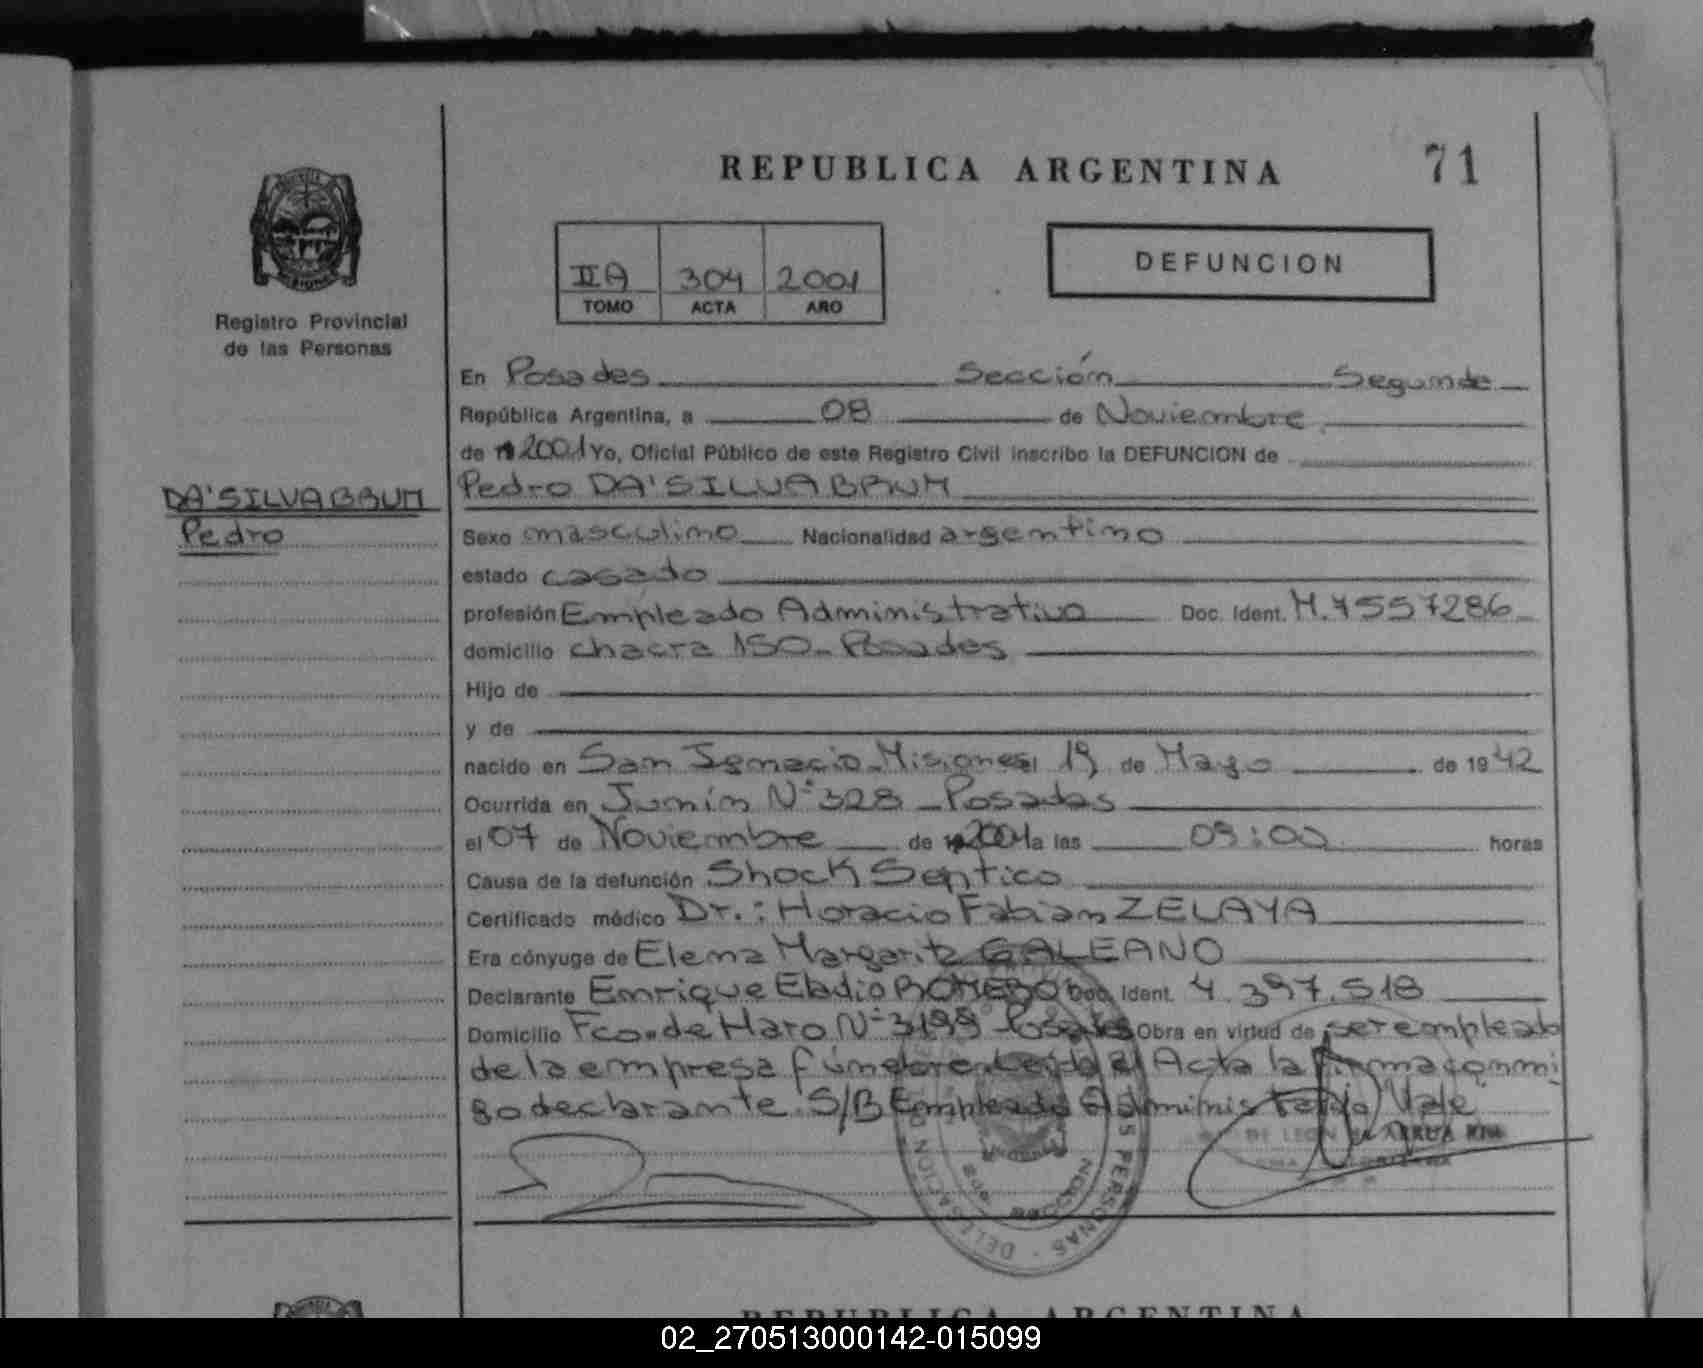 REPUBLICA ARGENTINA 71
IIA 304 2001
TOMO ACTA AÑO
DEFUNCION
Registro Provincial
de las Personas
En Posadas Sección Segunda
República Argentina, a 08 de Noviembre
de 2001 Yo, Oficial Público de este Registro Civil inscribo la DEFUNCION de
DA'SILVA BRUM
Pedro
Pedro DA'SILVA BRUM
Sexo masculino Nacionalidad argentino
estado casado
profesión Empleado Administrativo Doc. Ident. M.7557286
domicilio chacra 150 - Posadas
Hijo de
y de
nacido en San Ignacio - Misiones el 19 de Mayo de 1942
Ocurrida en Junín Nº 328 - Posadas
el 07 de Noviembre de 2001 a las 09:00 horas
Causa de la defunción Shock Septico
Certificado médico Dr.: Horacio Fabian ZELAYA
Era cónyuge de Elena Margarita GALEANO
Declarante Enrique Eladio ROMERO Doc. Ident. 4.397.518
Domicilio Fco. de Haro Nº 3199 - Posadas Obra en virtud de ser empleado
de la empresa fúnebre. Leída el Acta la firma conmi
go declarante. S/B Empleado Administrativo Vale
DELEGACION
PERSONAS
REPUBLICA ARGENTINA
02_270513000142-015099